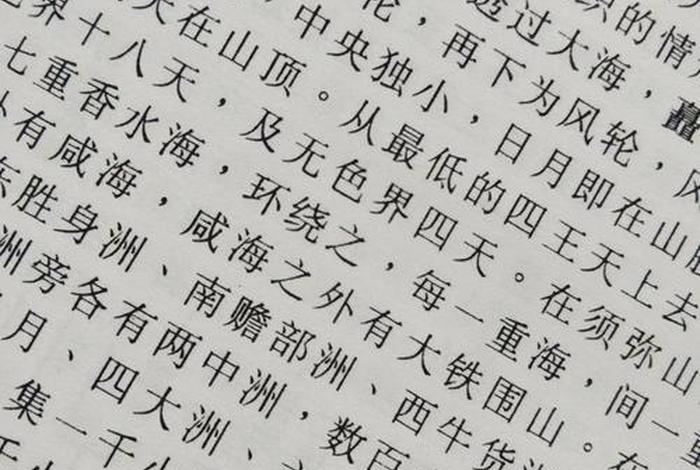 织的情
透过大海，矗
轮，再下为风轮，风
中央独小，日月即在山
天在山顶。从最低的四王天上去
界十八天，及无色界四天。在须弥山
七重香水海，环绕之，每一重海，间一重
外有咸海，咸海之外有大铁围山。在
东胜身洲、南赡部洲、西牛货洲
洲旁各有两中洲，数百
月、四大洲、
集一千小